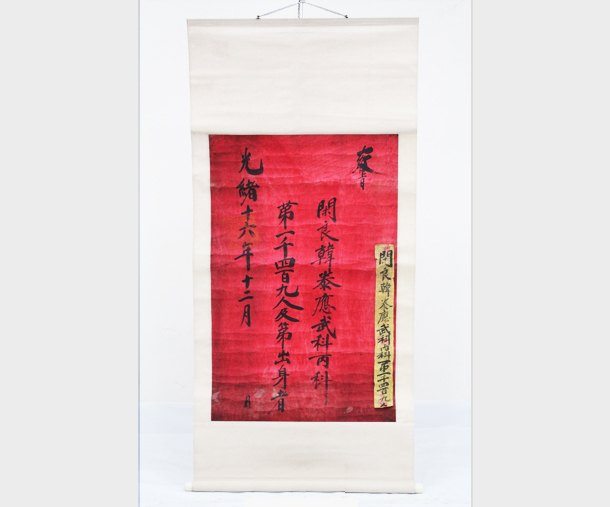 敎旨
閑良韓泰應武科丙科
第一千四百九人及第出身者
光緖十六年十二月 日
閑良韓泰應武科丙科第一千四百九人